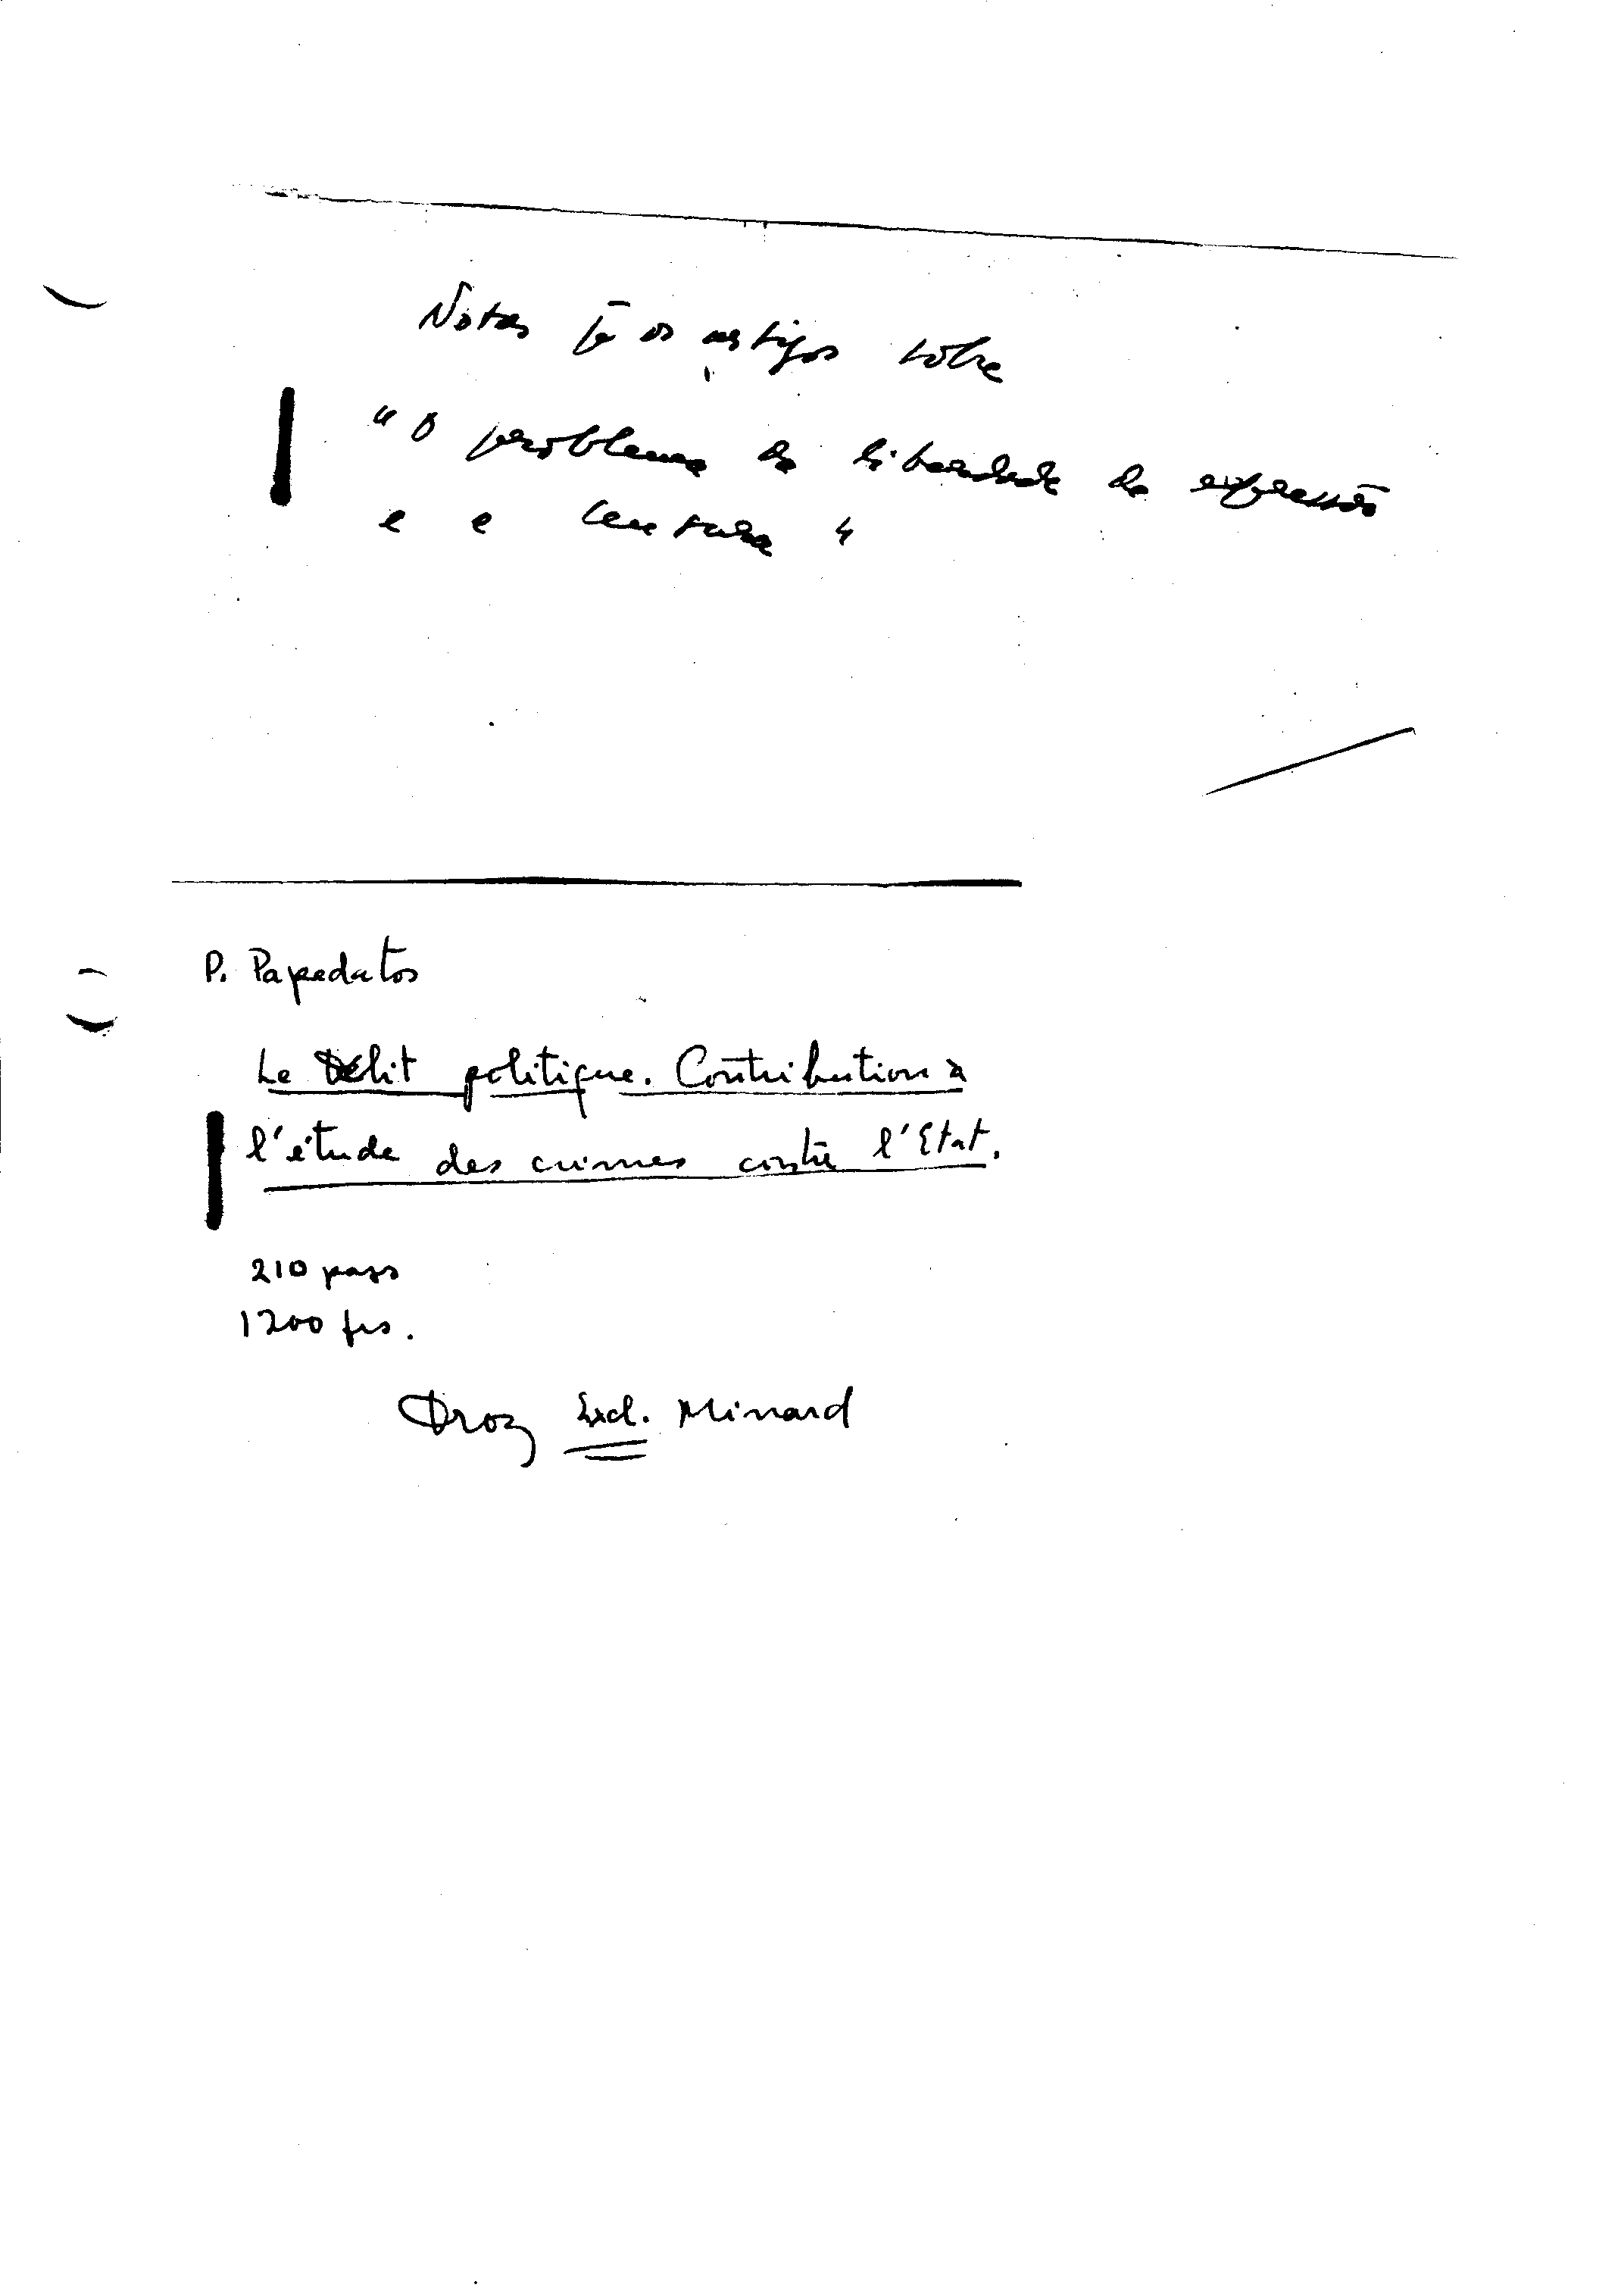 Notas pª os artigos sobre
"O problema da liberdade de expressão
e a censura"
P. Papadatos
Le Délit politique. Contribution à
l'étude des crimes contre l'Etat.
210 pags
1200 frs.
Droz Excl. Minard